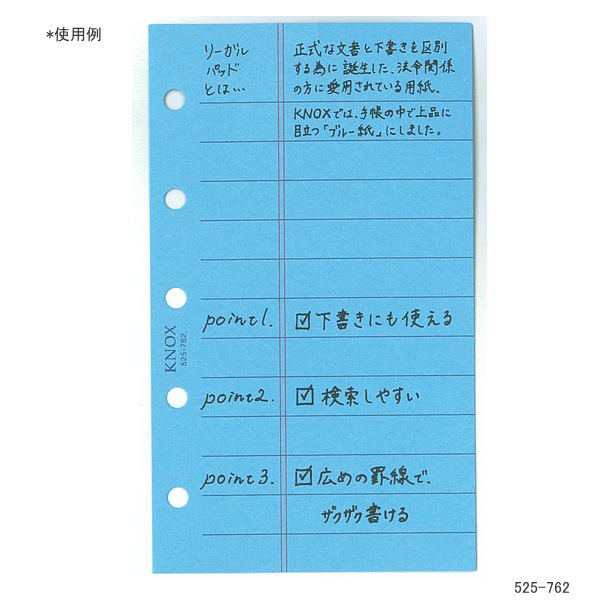 *使用例
リーガル
パッド
とは…
正式な文書と下書きを区別
する為に誕生した、法令関係
の方に愛用されている用紙。
KNOXでは、手帳の中で上品に
目立つ「ブルー紙」にしました。
point1.
☑下書きにも使える
point2.
☑検索しやすい
point3.
☑広めの罫線で、
ザクザク書ける
KNOX
525-762
525-762